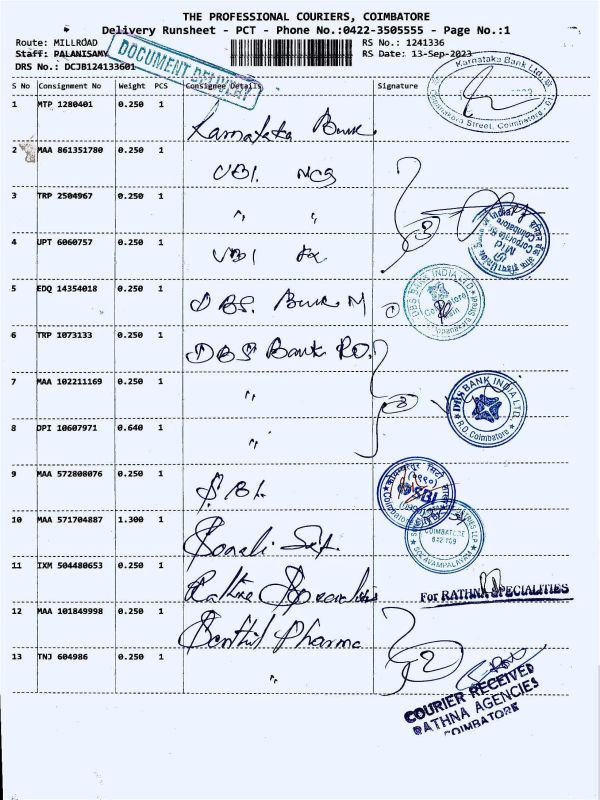 THE PROFESSIONAL COURIERS, COIMBATORE
Delivery Runsheet - PCT - Phone No.:0422-3505555 - Page No.:1
Route: MILLROAD RS No.: 1241336
Staff: PALANISAMY RS Date: 13-Sep-2023
DRS No.: DCJB124133601
DOCUMENT DELIVERY
Karnataka Bank Ltd.
Street, Coimbatore - 01
S No Consignment No Weight PCS Consignee Details Signature
1 MTP 1280401 0.250 1 Karnataka Bank
2 MAA 861351780 0.250 1 UBI
3 TRP 2504967 0.250 1 " "
4 UPT 6060757 0.250 1 UBI
Corporate
Coimbatore
5 EDQ 14354018 0.250 1 DBS Bank M
DBS BANK INDIA LTD.
6 TRP 1073133 0.250 1 DBS Bank RO.
7 MAA 102211169 0.250 1 "
DBS BANK INDIA LTD.
R.O. Coimbatore
8 DPI 10607971 0.640 1 "
9 MAA 572808076 0.250 1 SBI
SBI
10 MAA 571704887 1.300 1 Sonali
COIMBATORE
SOLAVAMPALAYAM
11 IXM 504480653 0.250 1 Rathna Specialities
For RATHNA SPECIALITIES
12 MAA 101849998 0.250 1 Senthil Pharma
13 TNJ 604986 0.250 1 "
COURIER RECEIVED
RATHNA AGENCIES
COIMBATORE